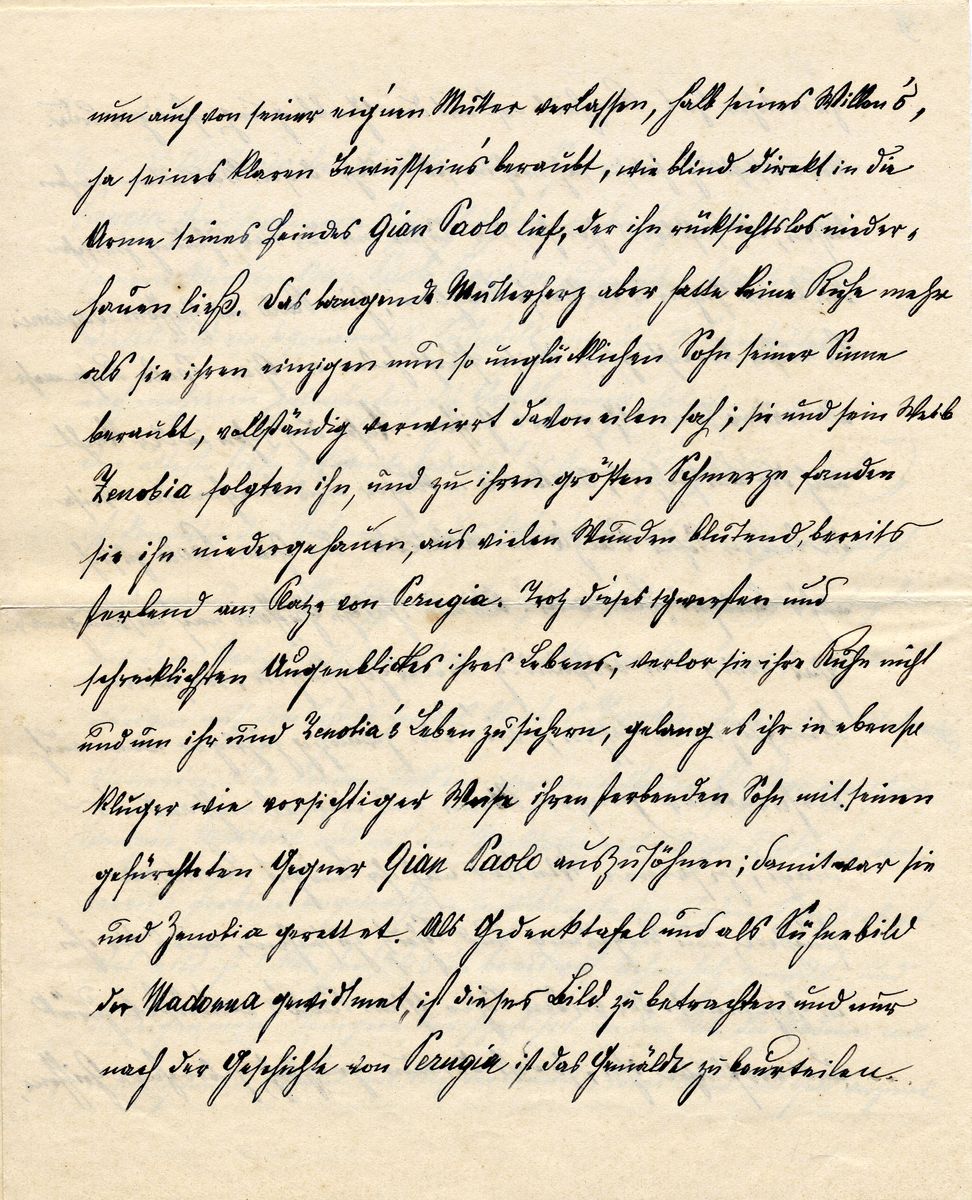 nun auch von seiner eig'nen Mutter verlassen, halb seines Willen's,
ja seines klaren Bewußtsein's beraubt, wie blind direkt in die
Arme seines Feindes Gian Paolo lief, der ihn rücksichtslos nieder-
hauen ließ. Das bangende Mutterherz aber hatte keine Ruhe mehr
als sie ihren einzigen nun so unglücklichen Sohn seiner Sinne
beraubt, vollständig verwirrt davoneilen sah; sie und sein Weib
Zenobia folgten ihn, und zu ihren größten Schmerze fanden
sie ihn niedergehauen, aus vielen Wunden blutend, bereits
sterbend am Platze von Perugia. Trotz dieses schwersten und
schrecklichsten Augenblickes ihres Lebens, verlor sie ihre Ruhe nicht
und um ihr und Zenobia's Leben zu sichern, gelang es ihr in ebenso
kluger wie vorsichtiger Weise ihren sterbenden Sohn mit seinen
gefürchteten Gegner Gian Paolo auszusöhnen; damit war sie
und Zenobia gerettet. Als Gedenktafel und als Sühnebild
der Madonna gewidtmet, ist dieses Bild zu betrachten und nur
nach der Geschichte von Perugia ist das Gemälde zu beurteilen.